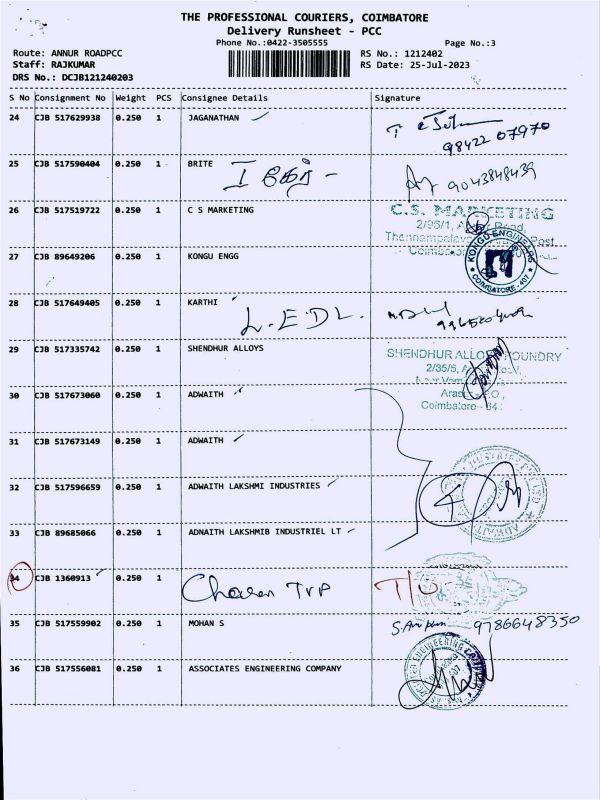 THE PROFESSIONAL COURIERS, COIMBATORE
Delivery Runsheet - PCC
Phone No.:0422-3505555 Page No.:3
Route: ANNUR ROADPCC RS No.: 1212402
Staff: RAJKUMAR RS Date: 25-Jul-2023
DRS No.: DCJB121240203
S No Consignment No Weight PCS Consignee Details Signature
24 CJB 517629938 0.250 1 JAGANATHAN
98422 07970
25 CJB 517590404 0.250 1 BRITE
9043848439
26 CJB 517519722 0.250 1 C S MARKETING C.S. MARKETING
2/95/1, Road,
Post
27 CJB 89649206 0.250 1 KONGU ENGG KONGU ENGINEERS
COIMBATORE - 407
28 CJB 517649405 0.250 1 KARTHI
L.E.D.L.
29 CJB 517335742 0.250 1 SHENDHUR ALLOYS SHENDHUR ALLOYS FOUNDRY
2/35/5,
Coimbatore - 641
30 CJB 517673060 0.250 1 ADWAITH
31 CJB 517673149 0.250 1 ADWAITH
32 CJB 517596659 0.250 1 ADWAITH LAKSHMI INDUSTRIES
33 CJB 89685066 0.250 1 ADNAITH LAKSHMIB INDUSTRIEL LT
34 CJB 1360913 0.250 1 Charan TVP T/O
35 CJB 517559902 0.250 1 MOHAN S 9786648350
36 CJB 517556081 0.250 1 ASSOCIATES ENGINEERING COMPANY